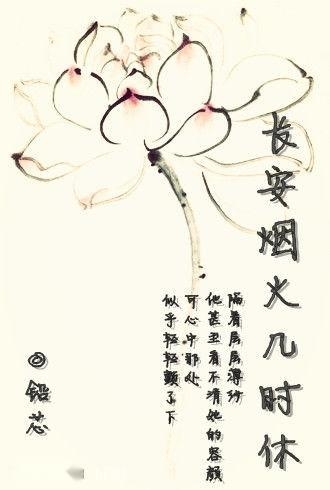 长安烟火几时休
隔着层层薄纱
他甚丑看不清她的容颜
可心中那处
似乎轻轻颤了下
◎铅芯